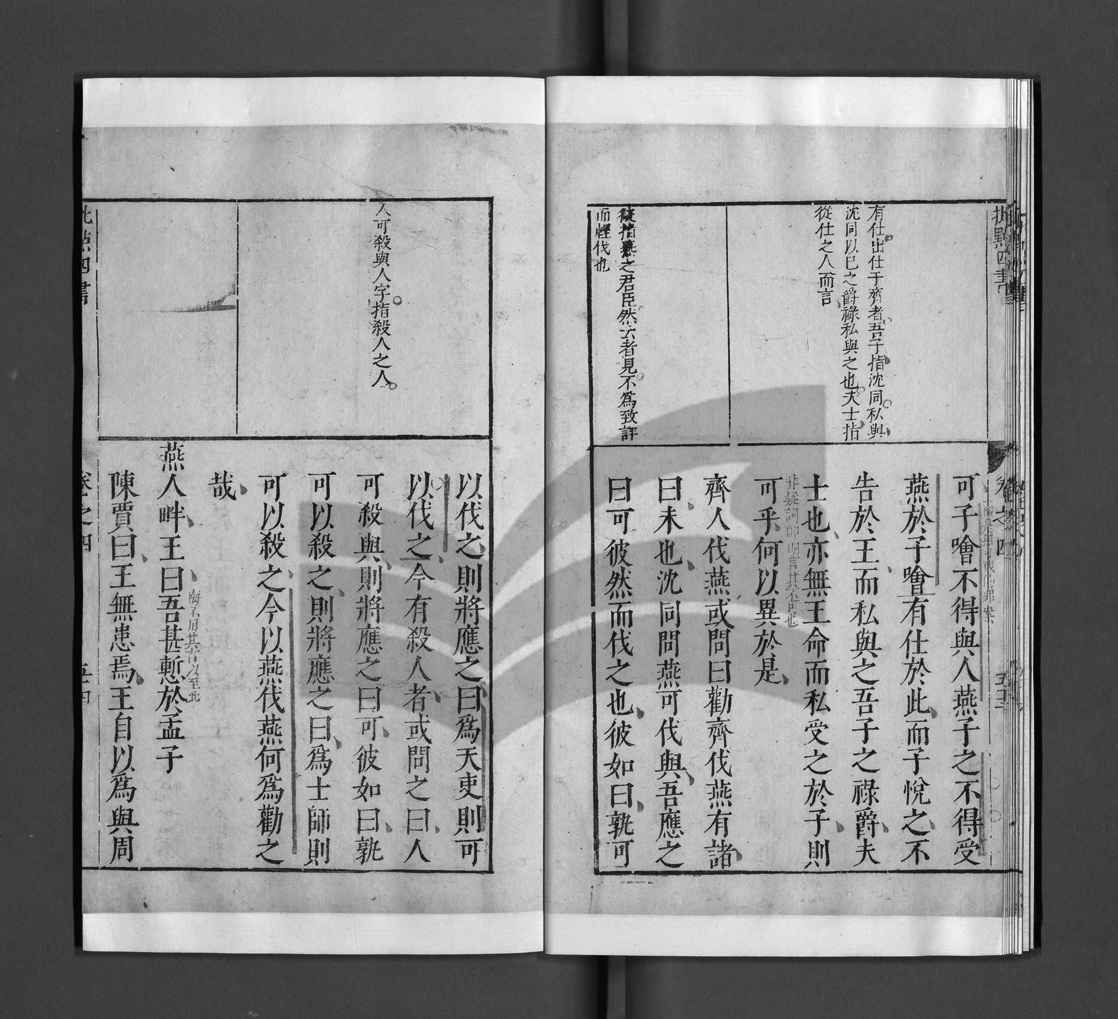 批點四書
卷之四
五十三
有仕出仕于齊者吾子指沈同私與
沈同以已之爵祿私與之也夫士指
從仕之人而言
從指燕之君臣然云者見不爲致詳
而輕伐也
可子噲不得與人燕子之不得受
燕於子噲有仕於此而子悅之不
告於王而私與之吾子之祿爵夫
士也亦無王命而私受之於子則
可乎何以異於是
非疑詞即明言其不可也
齊人伐燕或問曰勸齊伐燕有諸
曰未也沈同問燕可伐與吾應之
曰可彼然而伐之也彼如曰孰可
人可殺與人字指殺人之人
以伐之則將應之曰爲天吏則可
以伐之今有殺人者或問之曰人
可殺與則將應之曰可彼如曰孰
可以殺之則將應之曰爲士師則
可以殺之今以燕伐燕何爲勸之
哉
燕人畔王曰吾甚慙於孟子
悔不用其言以至此
陳賈曰王無患焉王自以爲與周
批點四書
卷之四
五十四